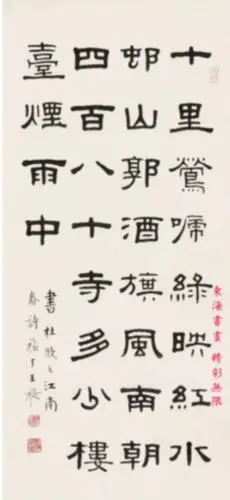 十里鶯啼綠映紅水
邨山郭酒旗風南朝
四百八十寺多少樓
臺煙雨中
書杜牧之江南
春詩
東海書畫 精彩無限